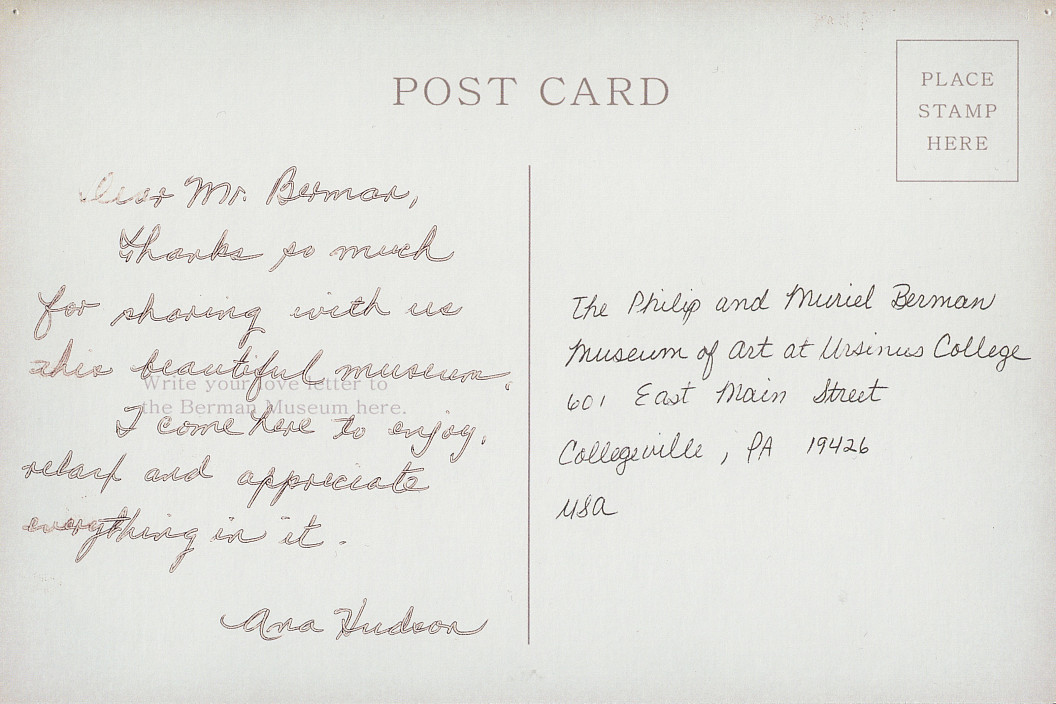 POST CARD
PLACE
STAMP
HERE
Dear Mr. Berman,
Thanks so much
for sharing with us
this beautiful museum.
Write your love letter to
the Berman Museum here.
I come here to enjoy,
relax and appreciate
everything in it.
Ana Hudson
The Philip and Muriel Berman
Museum of Art at Ursinus College
601 East Main Street
Collegeville, PA 19426
USA